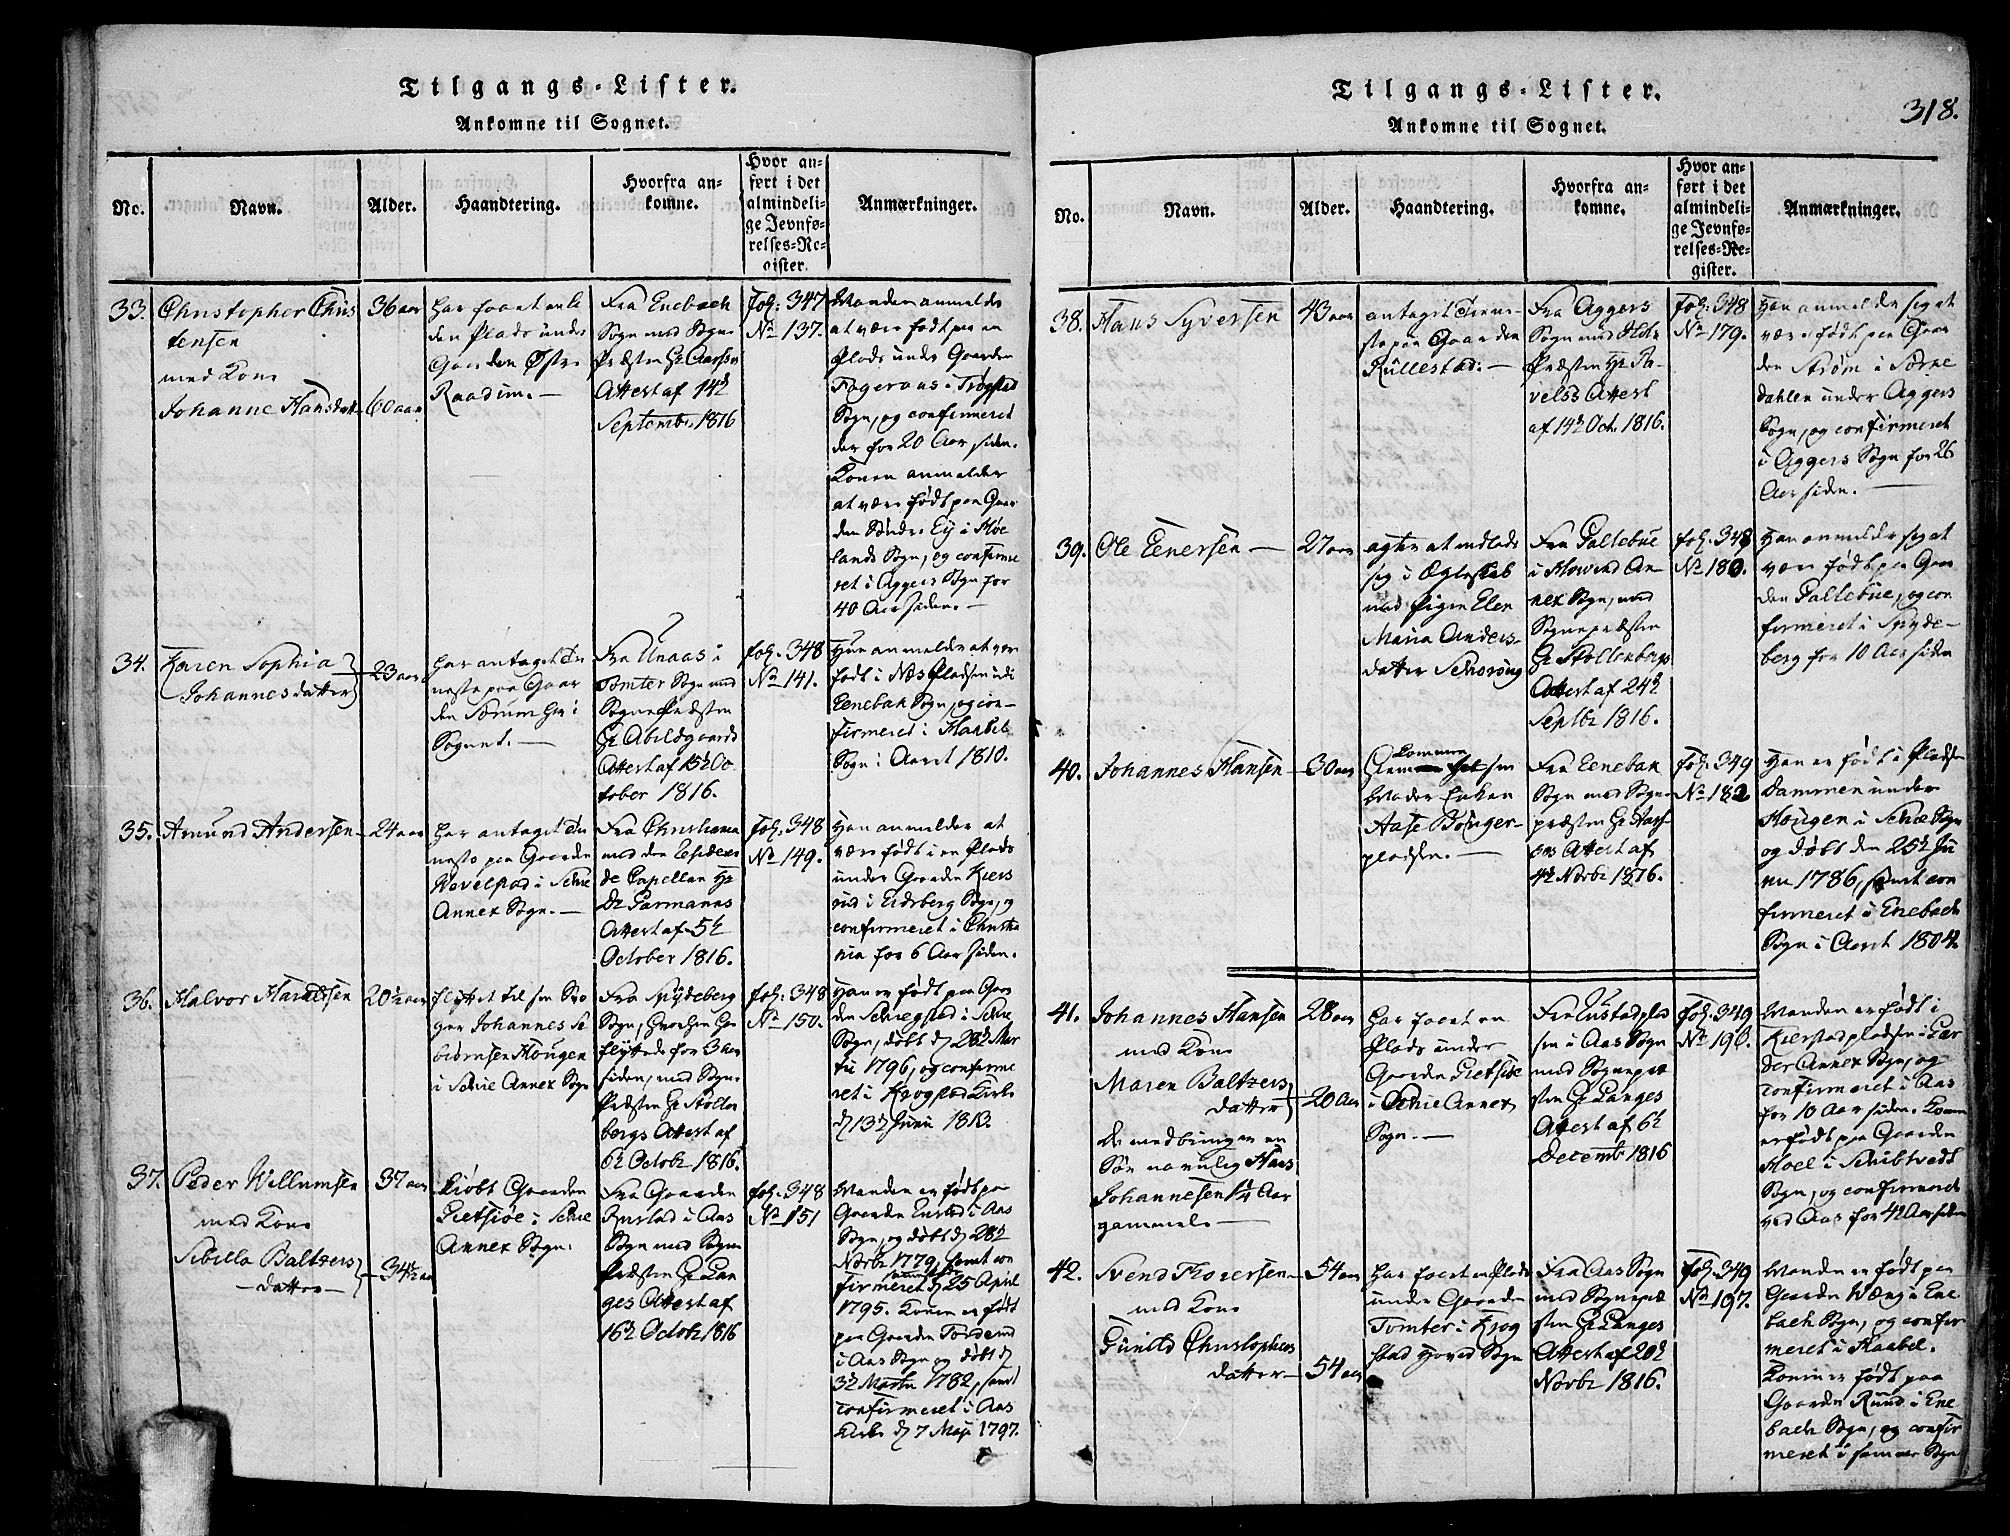 Tilgangs-Lister.
Ankomne til Sognet.
No.
Navn.
Alder.
Haandtering.
Hvorfra an-
komne.
Hvor an-
ført i det
almindeli-
ge Jevnfø-
relses-Re-
gister.
Anmærkninger.
33.
Christopher Chris
tensen
med Kone
Johanne Hansdatt
36 aar
60 aar
har faaet en li
den Plads under
Gaarden Østre
Raadim.
Fra Enebach
Sogn med Sogne
Præsten Hr
Attest af 14de
Septembr 1816
fol. 347
No 137.
Manden anmelder
at være født paa en
Plads under Gaarden
Fageraas i Trøgstad
Sogn, og confirmeret
der for 20 Aar siden.
Konen anmelder
at være født paa Gaar
den Søndre Ey i Høe
lands Sogn, og confirme
ret i Aggers Sogn for
40 Aar siden.
34.
Karen Sophia
Johannesdatter
23 aar
har antaget Tie
neste paa Gaar
den Sørum her i
Sognet.
Fra Unaas i
Tomter Sogn med
Sogne Præsten
Hr Abildgaards
Attest af 15de Oc
tober 1816.
fol. 348
No 141.
Hun anmelder at være
født i Næs Pladsen i
Eenebak Sogn, og con-
firmeret i Haabøl
Sogn i Aaret 1810.
35.
Amund Andersen
24 aar
har antaget Tie
neste paa Gaarden
Vevelstad i Schie
Annex Sogn.
Fra Christiania
med den Resideren
de Capellan Hr
Dr Garmanns
Attest af 5te
October 1816.
fol. 348
No 149.
Han anmelder at
være født i en Plads
under Gaarden Kiers
rud i Eidsberg Sogn, og
confirmeret i Christia
nia for 6 Aar siden.
36.
Halvor Haraldsen
20½ aar
flyttet til sin Svo
ger Johannes Se
biørnsen Hougen
i Schie Annex Sogn
Fra Spydeberg
Sogn, hvorhen han
flyttede for 3 Aar
siden, med Sogne
Præsten Hr Stolten
bergs Attest af
6te Octobr 1816.
fol. 348
No 150.
Han er født paa Gaar
den Schiegstad i Schie
Sogn, døbt d 28de Mar
tii 1796, og confirme
ret i Krogstad Kirke
d 13de Junii 1813.
37.
Peder Willumsen
med Kone
Sibilla Baltzers
datter
37 aar
34½ aar
kiøbt Gaarden
Gietsiøe i Schie
Annex Sogn.
Fra Gaarden
Rustad i Aas
Sogn med Sogne
Præsten Hr Lan
ges Attest af
16de Octobr 1816
fol. 348
No 151
Manden er født paa
Gaarden Rustad i Aas
Sogn, og døbt d 28de
Novbr 1779, samt con
firmeret d 25 April
1795. Konen er født
paa Gaarden Torderud
i Aas Sogn og døbt d
3de Martii 1782, samt
confirmeret i Aas
Kirke d 7 Maji 1797.
Tilgangs-Lister.
Ankomne til Sognet.
318.
No.
Navn.
Alder.
Haandtering.
Hvorfra an-
komne.
Hvor an-
ført i det
almindeli-
ge Jevnfø-
relses-Re-
gister.
Anmærkninger.
38.
Hans Syversen
43 aar
antaget Tiene-
ste paa Gaarden
Rullestad.
Fra Aggers
Sogn med
Præsten Hr Pa-
velss Attest
af 14de Oct. 1816.
fol. 348
No 179.
Han anmelder sig at
være født paa Gaar
den Strøm i Sørke
dahlen under Aggers
Sogn, og confirmeret
i Aggers Sogn for 26
Aar siden.
39.
Ole Eenersen
27 aar
agter at indlade
sig i Ægteskab
med Pigen Elen
Maria Anders-
datter
Fra Galtebue
i Howind An-
nex Sogn, med
Sognepræsten
Hr Stoltenbergs
Attest af 24de
Septbr 1816.
fol. 348
No 180.
Han anmelder sig at
være født paa Gaar
den Galtebue, og con
firmeret i Spyde-
berg for 10 Aar siden
40.
Johannes Hansen
30 aar
kommen
til sin
Moder Enken
Aase Bonger-
pladsen.
Fra Eenebak
Sogn med Sogne
præsten Hr
Attest af
4de Novbr 1816.
fol. 349
No 182
Han er født i Pladsen
Dammen under
Hougen i Schie Sogn
og døbt den 25de Ju
nii 1786, samt con
firmeret i Enebach
Sogn i Aaret 1804.
41.
Johannes Hansen
med Kone
Maren Baltzers
datter
De medbringer en
Søn navnlig Hans
Johannesen 1¼ Aar
gammel.
28 aar
20 Aar
har faaet en
Plads under
Gaarden Gietsiøe
i Schie Annex
Sogn.
Fra Rustadplad
sen i Aas Sogn
med Sognepræ
sten Hr Langes
Attest af 6te
Decembr 1816
fol. 349
No 190.
Manden er født i
Kierstadpladsen i Gar
der Annex Sogn, og
confirmeret i Aas
for 10 Aar siden. Konen
er født paa Gaarden
Moel i Schibtvedt
Sogn, og confirmeret
ved Aas for 4 Aar siden
42.
Svend Thoersen
med Kone
Gunild Christophers
datter
54 aar
54 aar
har faaet en Plads
under Gaarden
Tomter i Krog
stad Hoved Sogn
Fra Aas Sogn
med Sognepræ
sten Hr Langes
Attest af 20de
Novbr 1816.
fol. 349
No 197.
Manden er født paa
Gaarden Wæng i Ene
bach Sogn, og confir
meret i Haabel.
Konen er født paa
Gaarden Ruud i Ene
bach Sogn, og confir
meret i samme Sogn